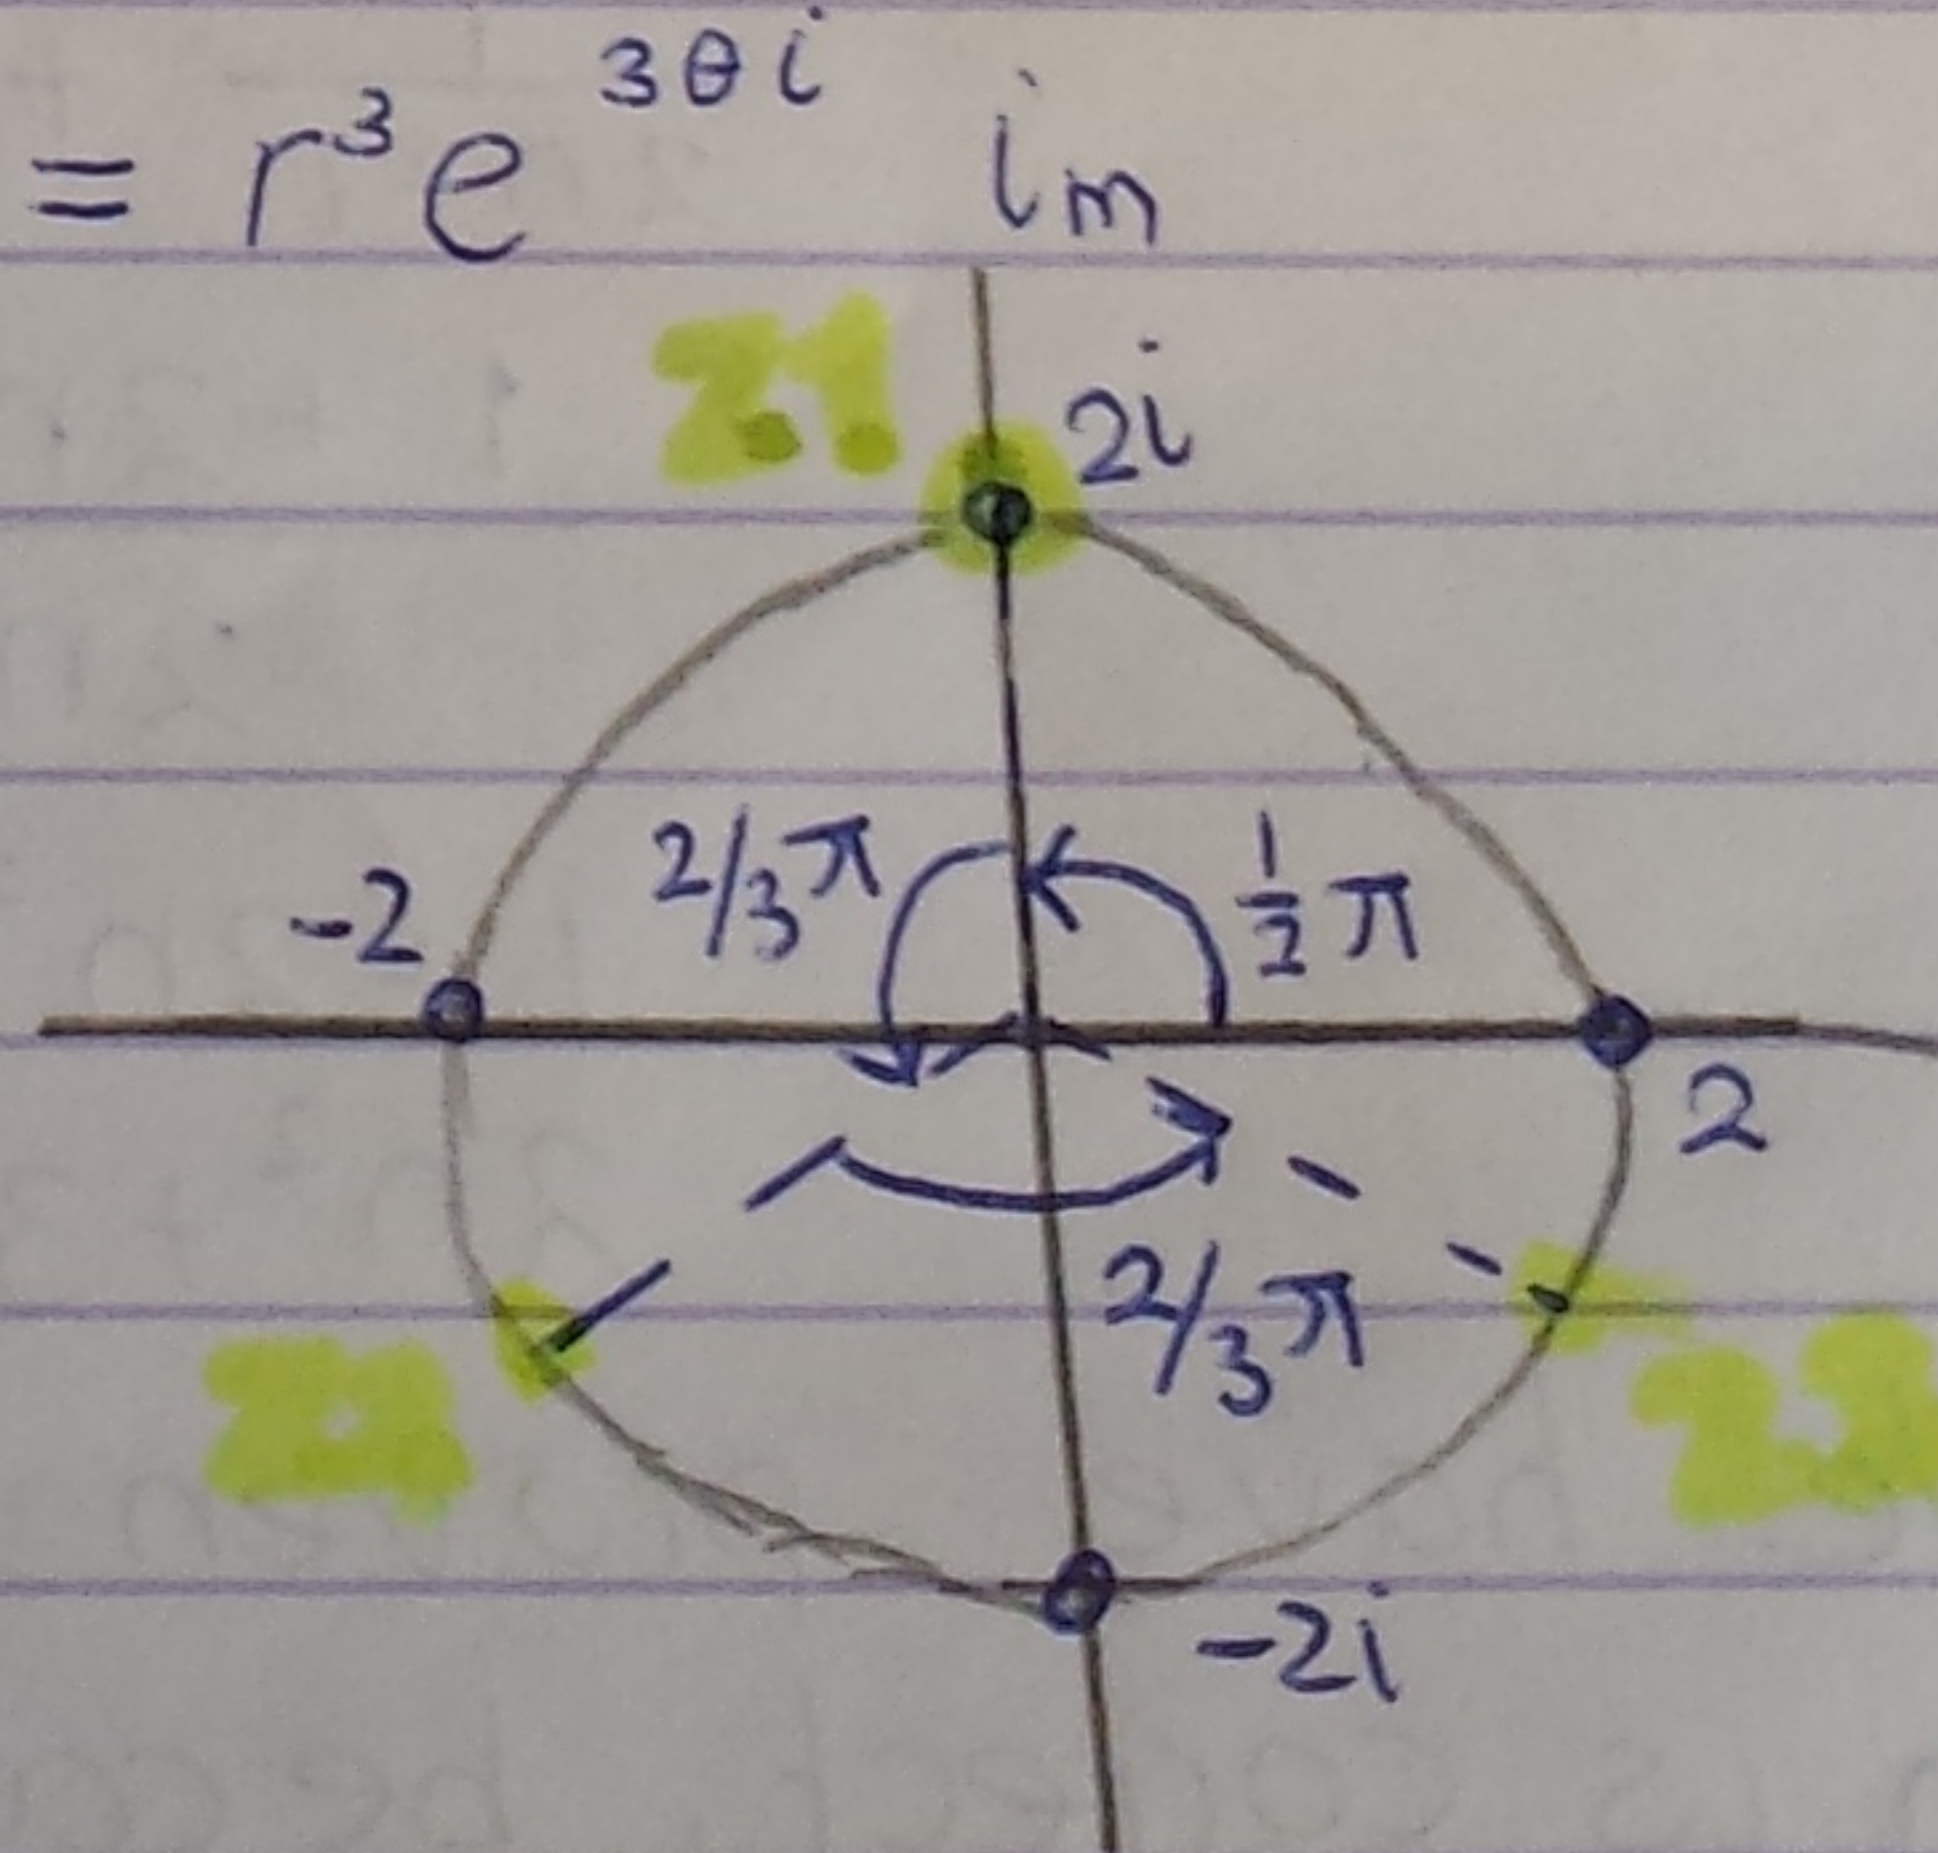 = r³e^{3θi}
im
z₁
2i
2/3π
½π
-2
2
2/3π
-2i